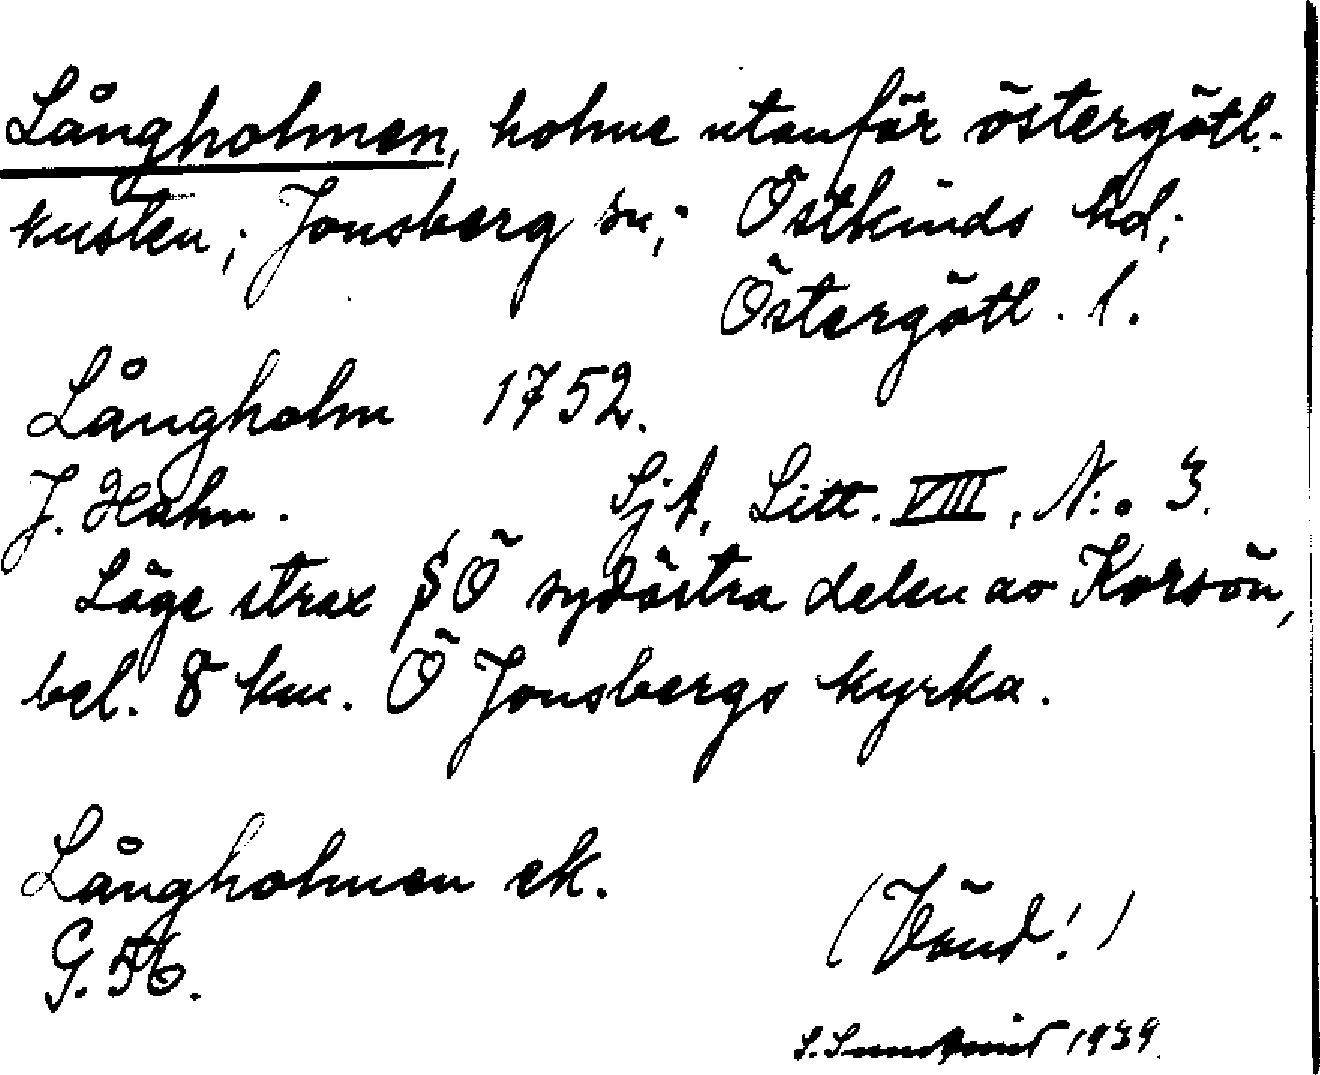 Långholmen, holme utanför östergötl.-
kusten; Jonsberg sn; Östkinds hd;
Östergötl. l.
Långholm 1752.
J. Hahn. Sjk, Litt. VIII, N:o 3.
Läge strax SÖ sydöstra delen av Korsön,
bel. 8 km. Ö Jonsbergs kyrka.
Långholmen ek.
G. 56.
(Vänd!)
1939.